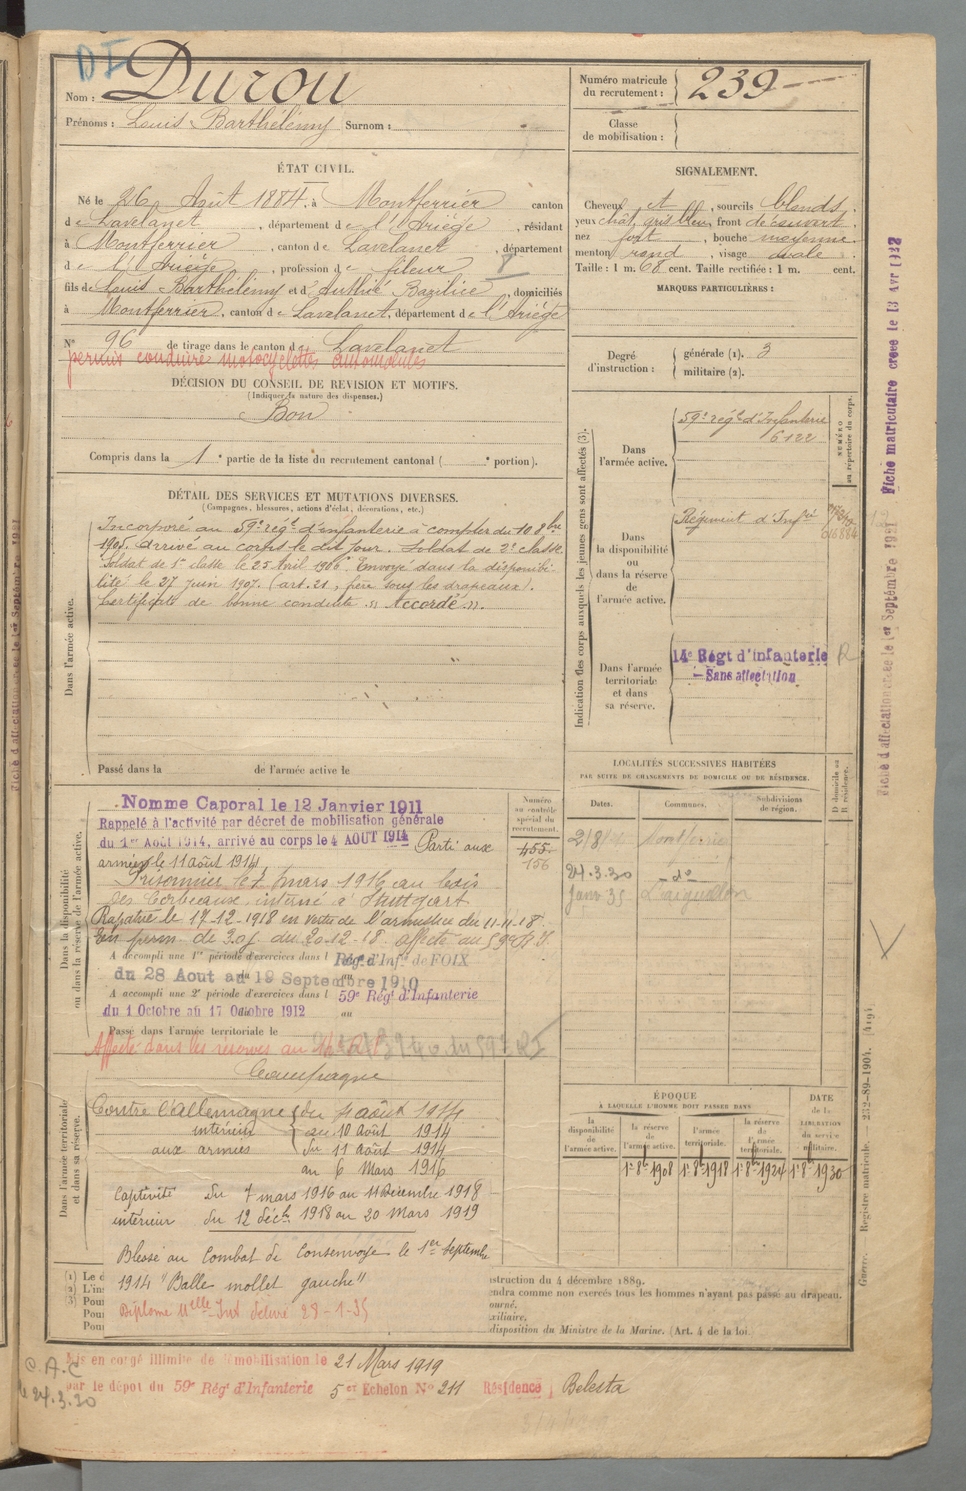 DI
Nom : Durou
Prénoms : Louis Barthélémy Surnom :
Numéro matricule
du recrutement : 239
Classe
de mobilisation :
ÉTAT CIVIL.
Né le 26 Août 1884, à Montferrier canton
de Lavelanet, département de l'Ariège, résidant
à Montferrier, canton de Lavelanet, département
de l'Ariège, profession de fileur
fils de Louis Barthélémy et d' Authié Bazilice, domiciliés
à Montferrier, canton de Lavelanet, département de l'Ariège
N° 96 de tirage dans le canton de Lavelanet
permis conduire motocyclettes automobiles
DÉCISION DU CONSEIL DE REVISION ET MOTIFS.
(Indiquer la nature des dispenses.)
Bon
Compris dans la 1e partie de la liste du recrutement cantonal ( e portion).
SIGNALEMENT.
Cheveux et, sourcils blonds,
yeux chât. gris bleu, front découvert
nez fort, bouche moyenne
menton rond, visage ovale
Taille : 1 m. 68 cent. Taille rectifiée : 1 m. cent.
MARQUES PARTICULIÈRES :
Degré
d'instruction :
générale (1). 3
militaire (2).
DÉTAIL DES SERVICES ET MUTATIONS DIVERSES.
(Campagnes, blessures, actions d'éclat, décorations, etc.)
Dans l'armée active.
Incorporé au 59e régt d'infanterie à compter du 10 8bre
1905. Arrivé au corps le dit jour. Soldat de 2e classe.
Soldat de 1re classe le 25 Avril 1906. Envoyé dans la disponibi-
lité le 27 juin 1907. (art. 21, frère sous les drapeaux).
Certificat de bonne conduite "Accordé".
Passé dans la de l'armée active le
Indication des corps auxquels les jeunes gens sont affectés (3).
NUMÉRO
au répertoire du corps.
Dans
l'armée active.
59e régt d'Infanterie
6122
Dans
la disponibilité
ou
dans la réserve
de
l'armée active.
Régiment d'Infie
Dans l'armée
territoriale
et dans
sa réserve.
14e Régt d'infanterie
Sans affectation
R
Fiche matriculaire créée le 13 Avr 1932
Fiche d'affectation créée le 1er Septembre 1931
Dans la disponibilité
ou dans la réserve de l'armée active.
Nommé Caporal le 12 Janvier 1911
Rappelé à l'activité par décret de mobilisation générale
du 1er Août 1914, arrivé au corps le 4 AOUT 1914 Parti aux
armées le 11 août 1914
Prisonnier le 7 mars 1916 au bois
des Corbeaux, interné à Stuttgart
Rapatrié le 17-12-1918 en vertu de l'armistice du 11-11-18
En perm. de 30 j. du 20-12-18. affecté au 59e R.I.
A accompli une 1re période d'exercices dans l Régt d'Infie de FOIX
du 28 Aout au 19 Septembre 1910
A accompli une 2e période d'exercices dans l 59e Régt d'Infanterie
du 1 Octobre au 17 Octobre 1912 au
Passé dans l'armée territoriale le
Affecté dans les réserves au
Numéro
au contrôle
spécial du
recrutement.
455
156
LOCALITÉS SUCCESSIVES HABITÉES
PAR SUITE DE CHANGEMENTS DE DOMICILE OU DE RÉSIDENCE.
Dates. Communes. Subdivisions
de région.
D domicile ou
R résidence.
Montferrier
24.3.30 - do -
Janv 35 L'aiguillon
Dans l'armée territoriale
et dans sa réserve.
Campagne
Contre l'Allemagne { du 4 août 1914
intérieur { au 10 Août 1914
aux armées du 11 août 1914
au 6 Mars 1916
Captivité du 7 mars 1916 au 11 décembre 1918
intérieur du 12 décb. 1918 au 20 Mars 1919
Blessé au Combat de Consenvoye le 1er septembre
1914 "Balle mollet gauche"
Diplôme Ulle-Int délivré 28-1-35
ÉPOQUE
À LAQUELLE L'HOMME DOIT PASSER DANS
la
disponibilité
de
l'armée active.
la réserve
de
l'armée active.
l'armée
territoriale.
la réserve
de
l'armée
territoriale.
DATE
de la
LIBÉRATION
du service
militaire.
1r 8b 1908 1r 8b 1918 1r 8b 1924 1r 8b 1930
(1) Le d
(2) L'ins
(3) Pour
Pour
Pour
struction du 4 décembre 1889.
endra comme non exercés tous les hommes n'ayant pas passé au drapeau.
ourné.
uxiliaire.
disposition du Ministre de la Marine. (Art. 4 de la loi
Guerre. Registre matricule. 232-89-1904. [419]
Mis en congé illimité de démobilisation le 21 Mars 1919
par le dépôt du 59e Régt d'Infanterie 5er Echelon No 211 Résidence Belesta
C.A.C
le 24.3.30